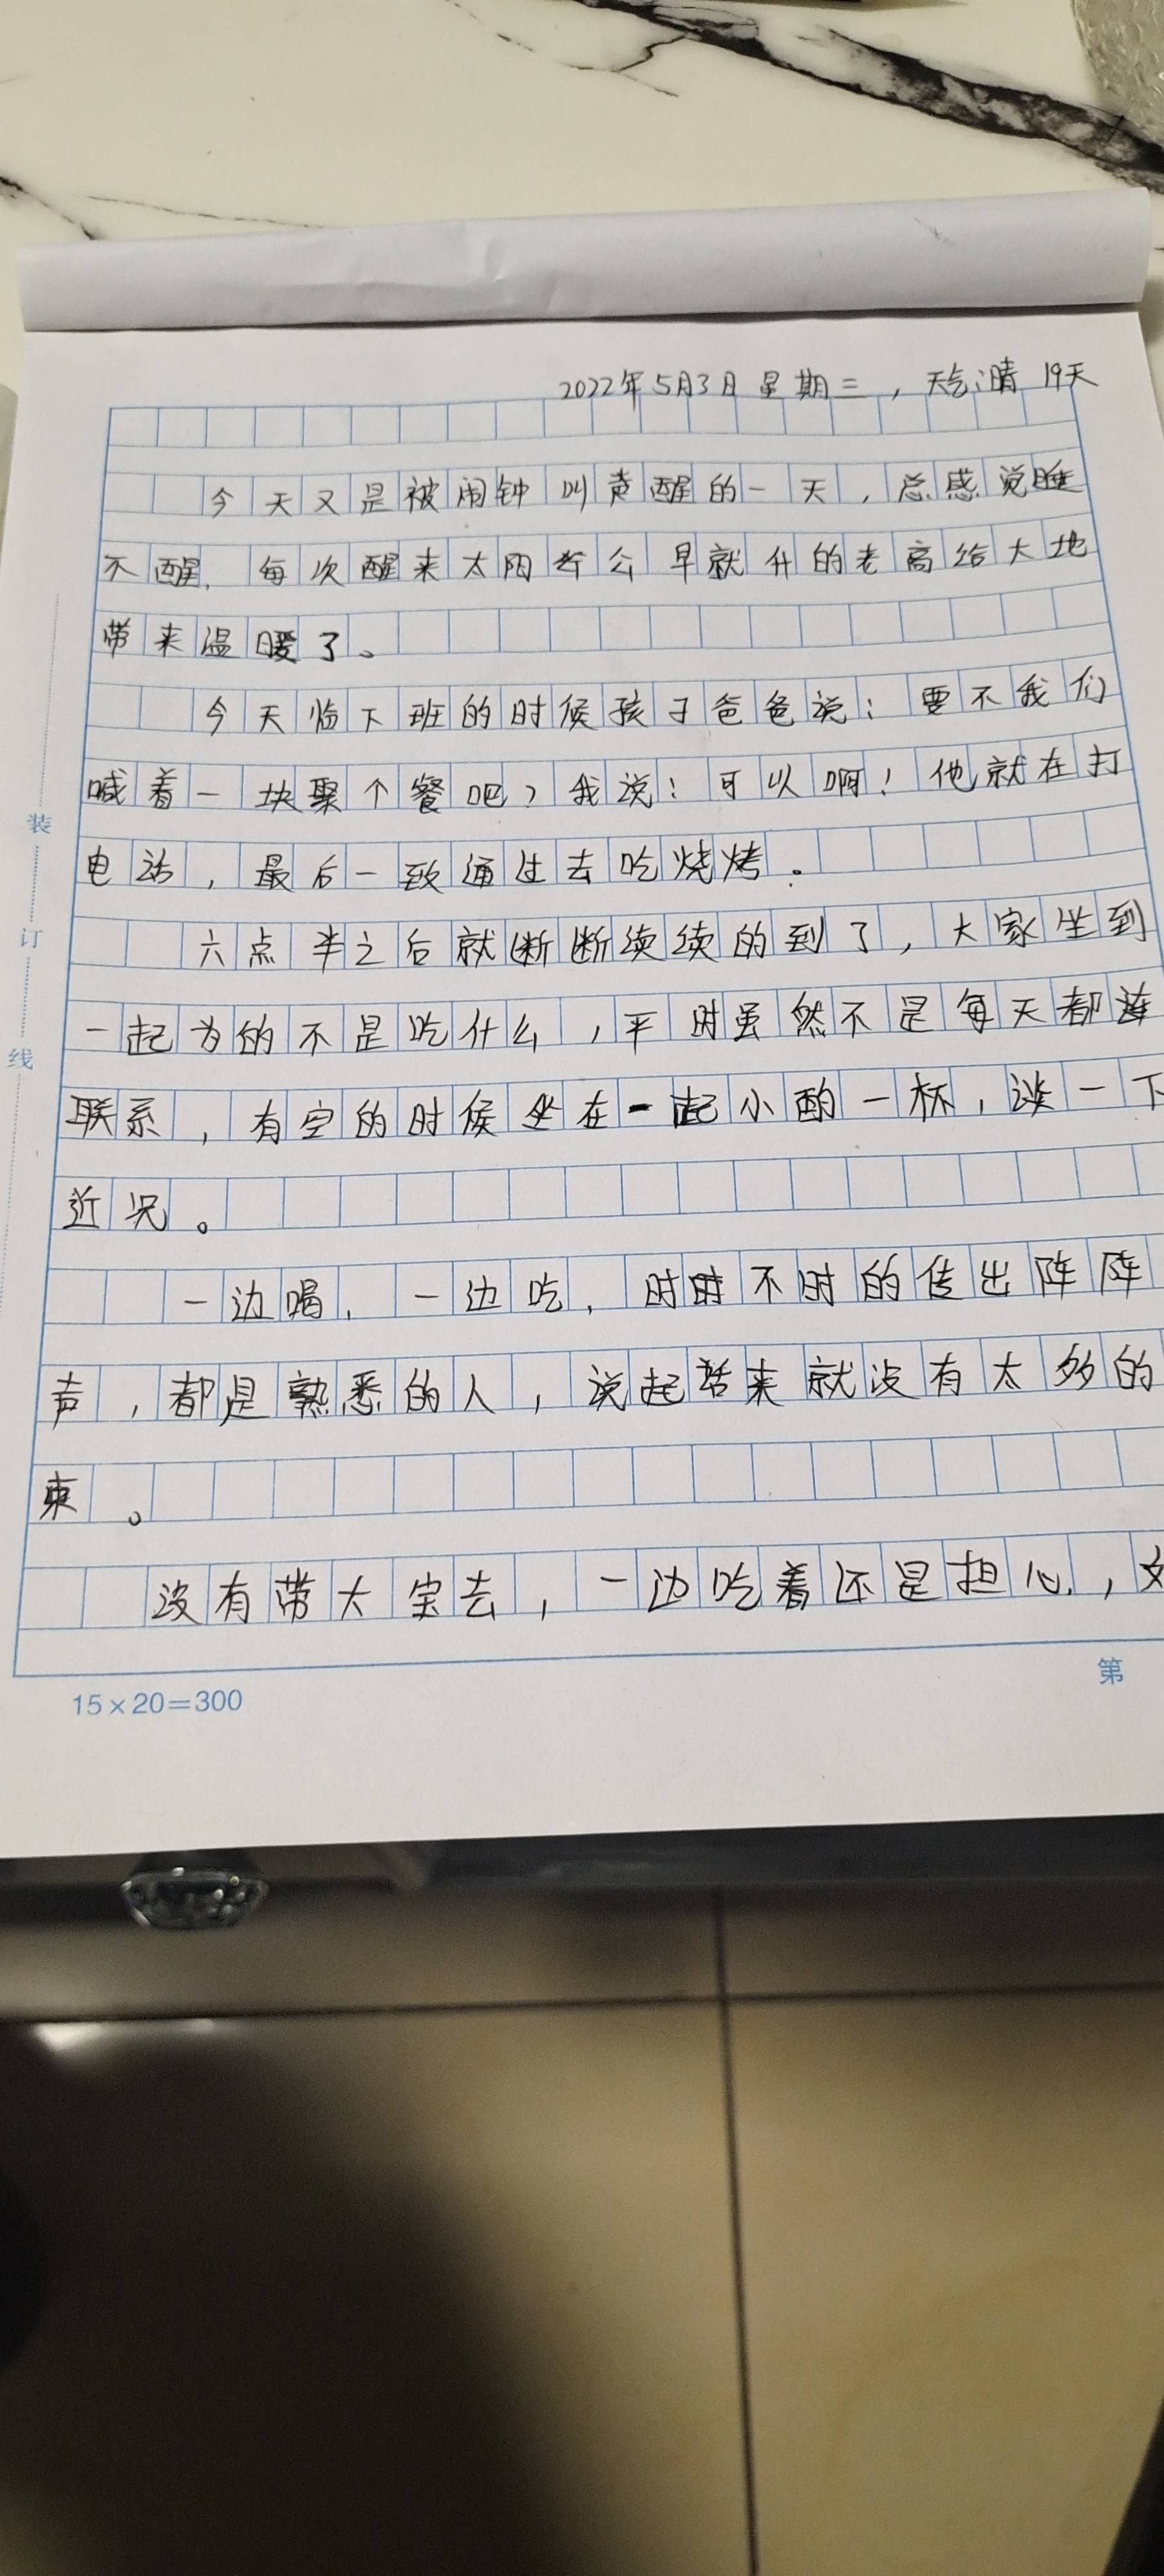 2022年5月3日 星期三，天气:晴 19天
今天又是被闹钟叫着醒的一天，总感觉睡
不醒，每次醒来太阳公公早就升的老高给大地
带来温暖了。
今天临下班的时候孩子爸爸说：要不我们
喊着一块聚个餐吧？我说！可以啊！他就在打
电话，最后一致通过去吃烧烤。
六点半之后就断断续续的到了，大家坐到
一起为的不是吃什么，平时虽然不是每天都
联系，有空的时候坐在一起小酌一杯，谈一下
近况。
一边喝，一边吃，时时不时的传出阵阵
声，都是熟悉的人，说起话来就没有太多的
束。
没有带大宝去，一边吃着还是担心，
装
订
线
15×20=300
第